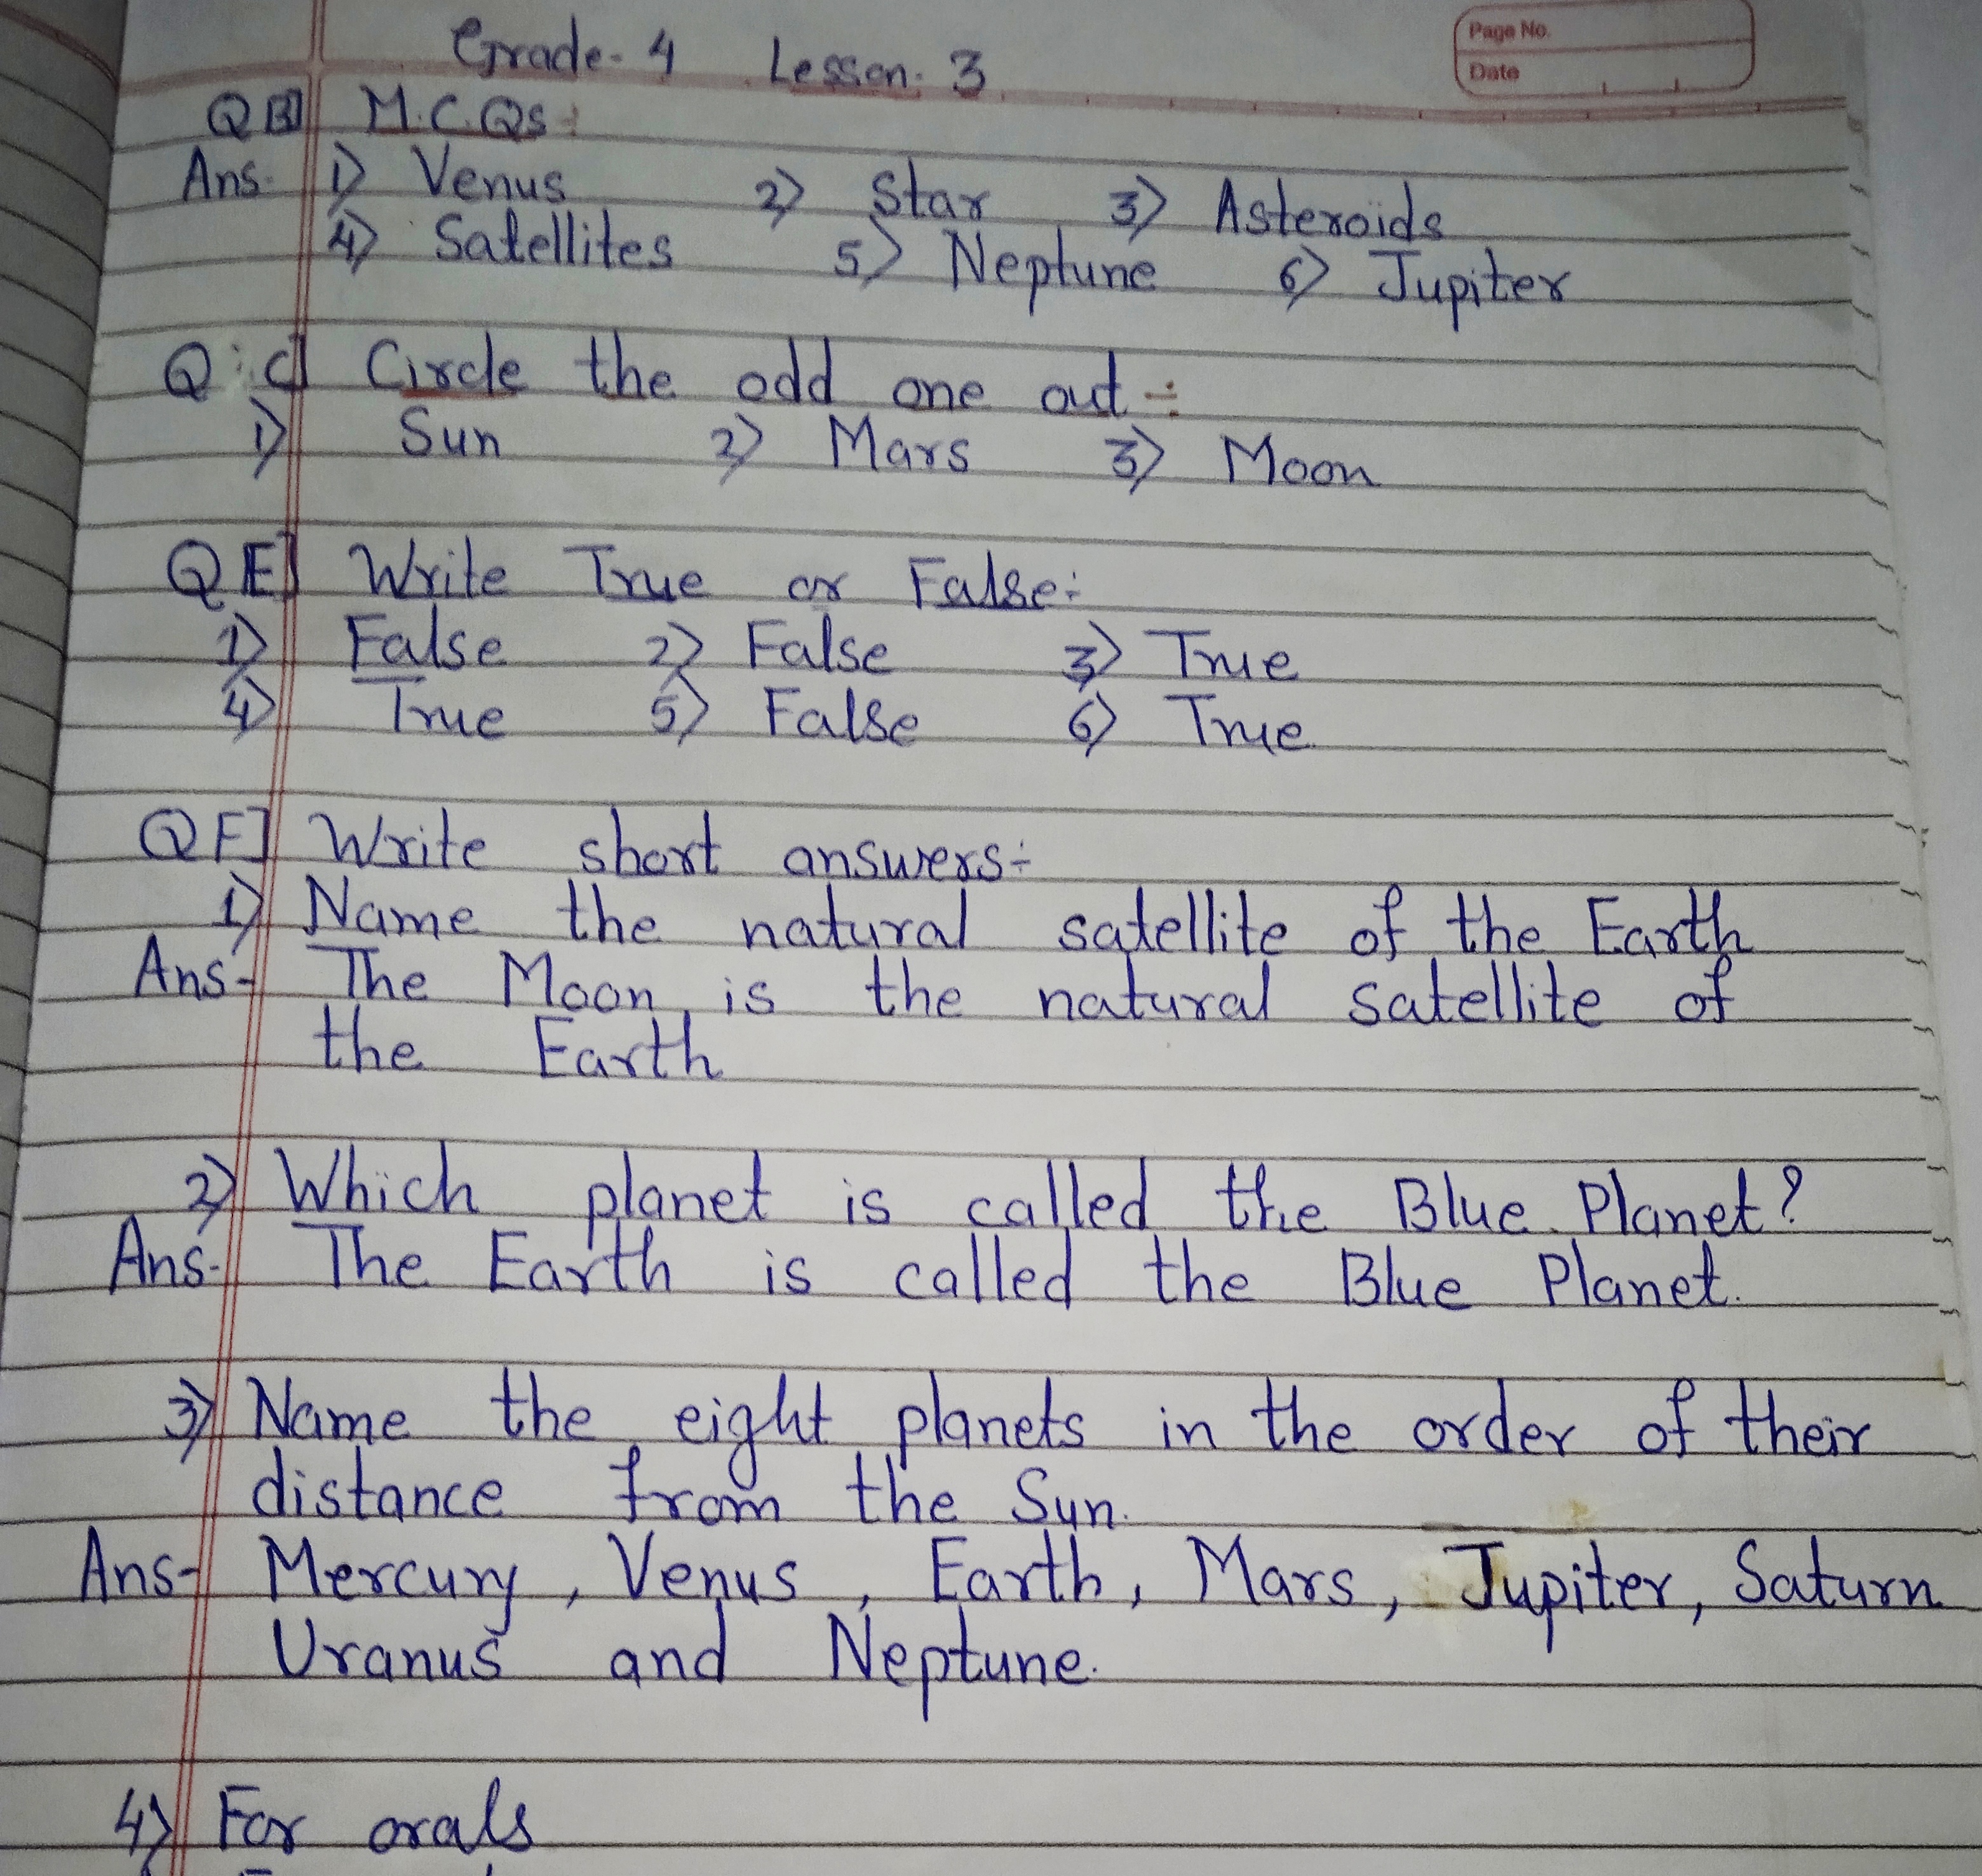 Grade-4 Lesson-3
Page No.
Date
Q B] M.C.Qs:
Ans- 1) Venus 2) Star 3) Asteroids
4) Satellites 5) Neptune 6) Jupiter
Q:C] Circle the odd one out÷
1) Sun 2) Mars 3) Moon
Q E] Write True or False:
1) False 2) False 3) True
4) True 5) False 6) True
Q F] Write short answers÷
1) Name the natural satellite of the Earth
Ans- The Moon is the natural satellite of
the Earth
2) Which planet is called the Blue Planet?
Ans- The Earth is called the Blue Planet.
3) Name the eight planets in the order of their
distance from the Sun.
Ans- Mercury, Venus, Earth, Mars, Jupiter, Saturn
Uranus and Neptune.
4) For orals